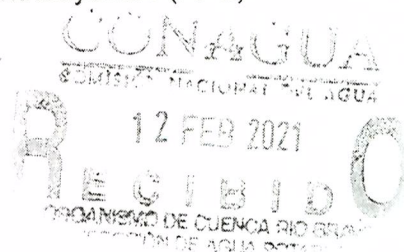 CONAGUA
COMISIÓN NACIONAL DEL AGUA
12 FEB 2021
RECIBIDO
ORGANISMO DE CUENCA RIO BRAVO
DIRECCION DE AGUA POTABLE